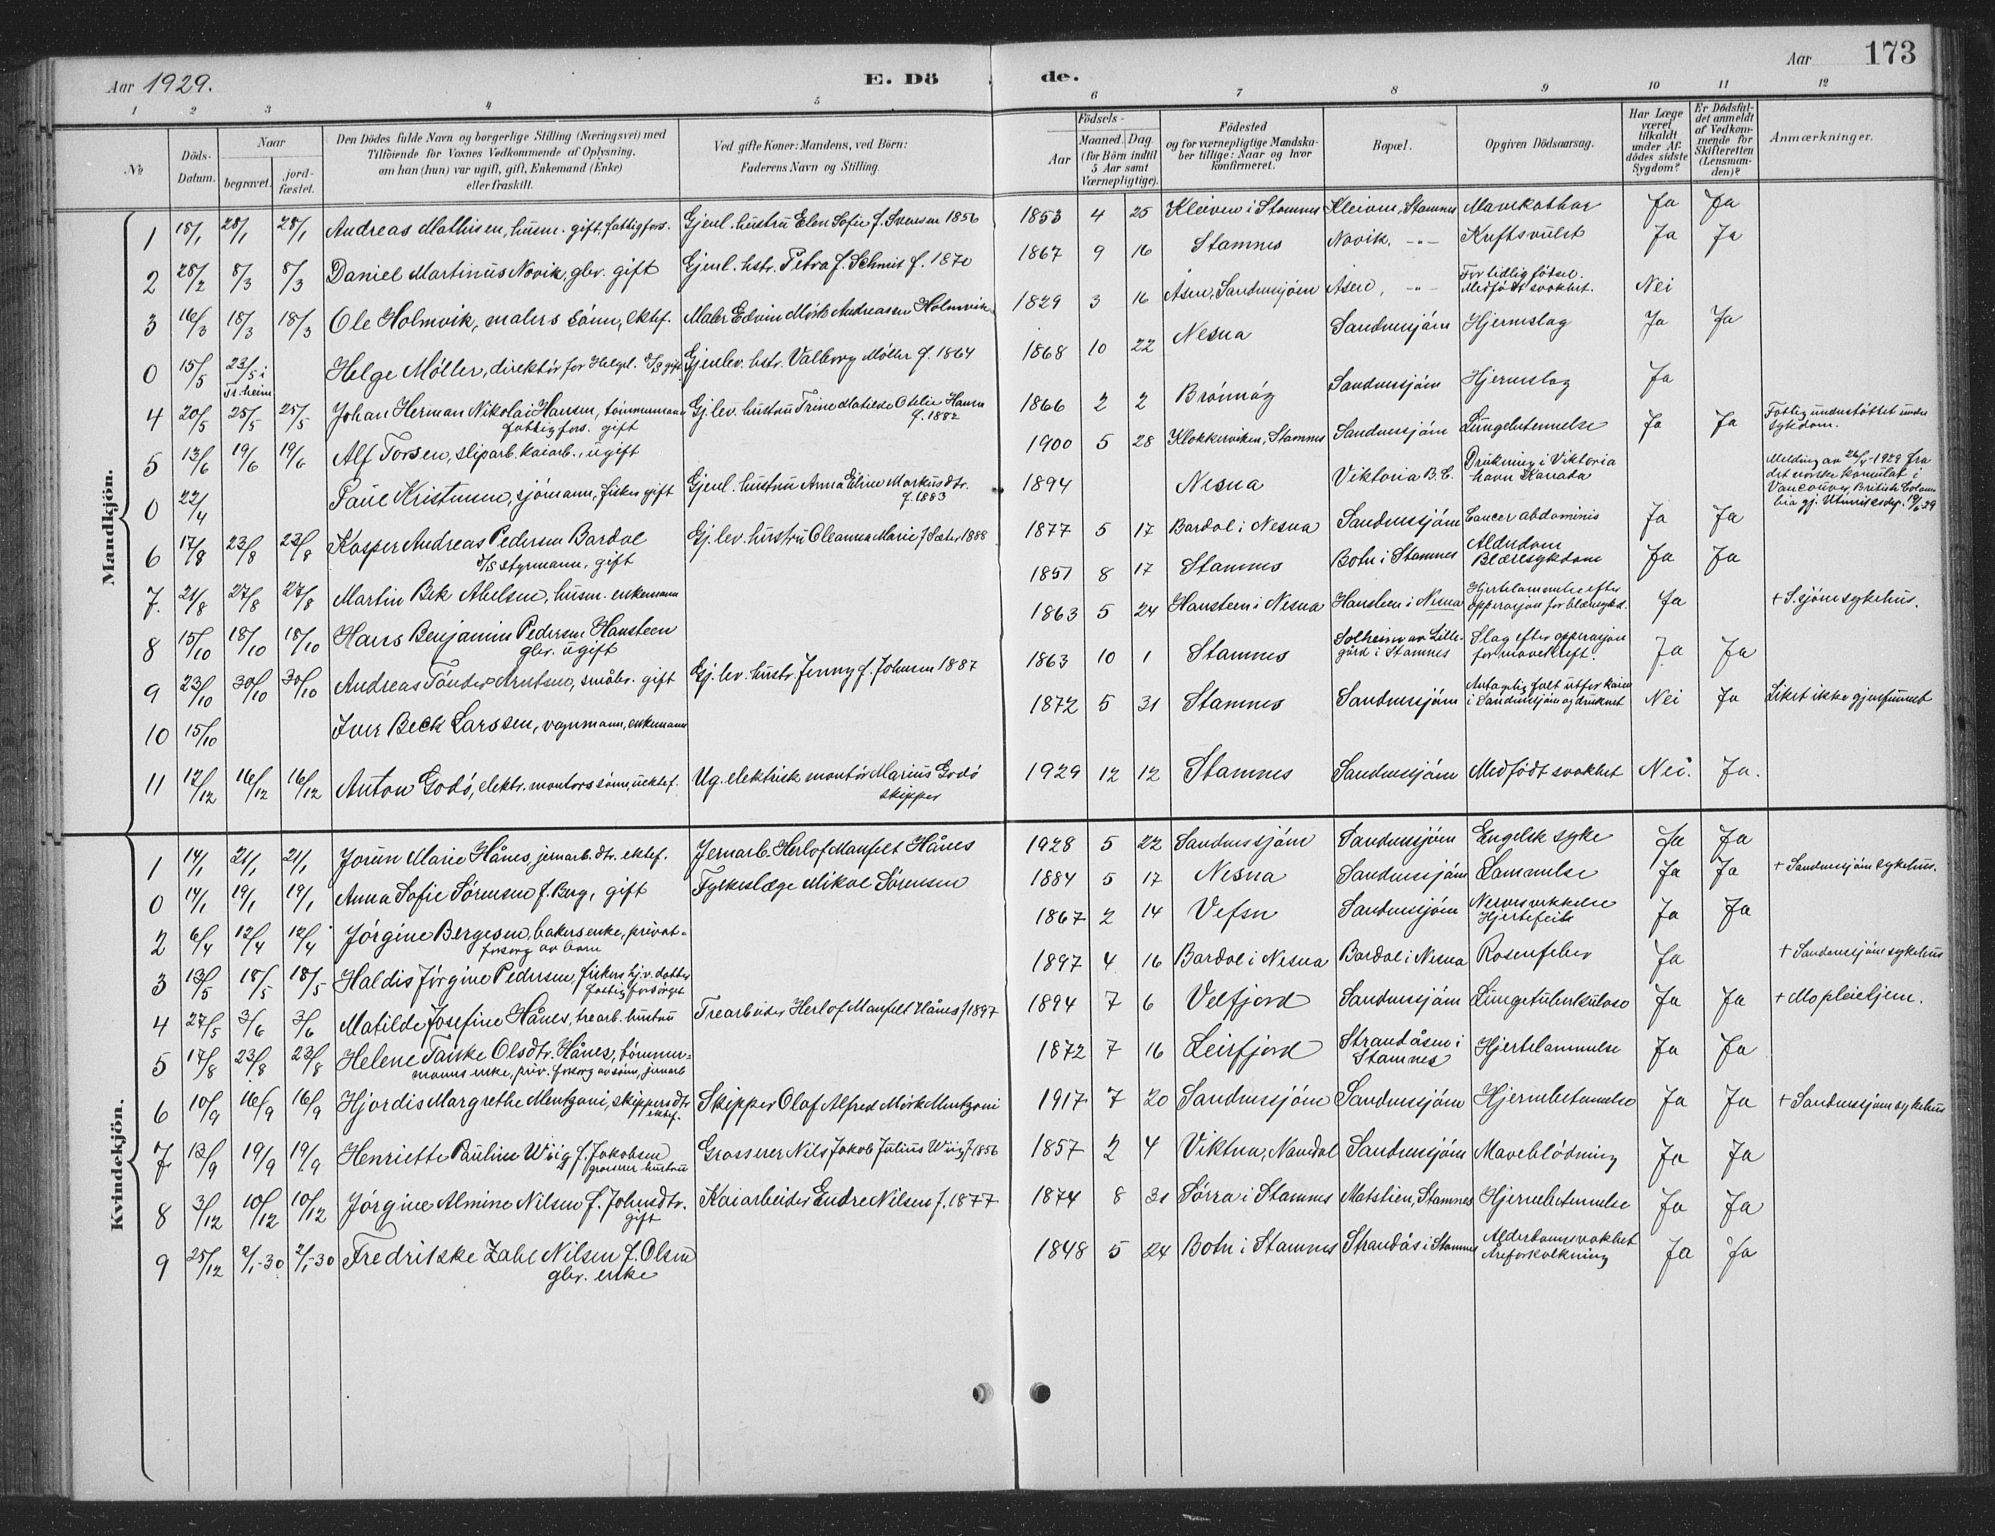 Aar 1929. E. Dö de. Aar 173
1 2 3 4 5 6 7 8 9 10 11 12
No
Döds-Datum.
Naar
begravet.
jord-fæstet.
Den Dödes fulde Navn og borgerlige Stilling (Næringsvei) med
Tilföiende för Voxnes Vedkommende af Oplysning,
om han (hun) var ugift, gift, Enkemand (Enke)
eller fraskilt.
Ved gifte Koner: Mandens, ved Börn:
Faderens Navn og Stilling.
Födsels-
Aar
Maaned. Dag.
(for Börn indtil
5 Aar samt
Værnepligtige).
Födested
og for værnepligtige Mandska-
ber tillige: Naar og hvor
konfirmeret.
Bopæl.
Opgiven Dödsaarsag.
Har Læge
været
tilkaldt
under Af-
dödes sidste
Sygdom?
Er Dödsfal-
det anmeldt
af Vedkom-
mende for
Skifteretten
(Lensman-
den)?
Anmærkninger.
Mandkjön.
1 18/1 28/1 28/1 Andreas Mathisen, husm. gift, fattigfors. Gjenl. hustru Elen Sofie f. Svensen 1856 1853 4 25 Kleiven i Stamnes Kleiven, Stamnes Mavekathar Ja Ja
2 28/2 8/3 8/3 Daniel Martinus Novik, gbr. gift Gjenl. hstr. Petra f. Schmit f. 1870 1867 9 16 Stamnes Novik, -"- Kræftsvulst Ja Ja
3 16/3 18/3 18/3 Ole Holmvik, malers sönn, ektef. Maler Edvin Mörk Andreassen Holmvik 1929 3 16 Åsen, Sandnessjöen Åsen, -"- For tidlig fötsel. Medfödt svakhet. Nei
0 15/5 23/5 i Tr.heim Helge Møller, direktör for Helgel. D/S gift Gjenlev. hstr. Valborg Møller f. 1864 1868 10 22 Nesna Sandnessjöen Hjerneslag Ja Ja
4 20/5 25/5 25/5 Johan Herman Nikolai Hansen, tömmermann fattigfors. gift Gj.lev. hustru Trine Matilde Otelie Hansen f. 1882 1866 2 2 Brönnöy Sandnessjöen Hjerneslag Ja
5 13/6 19/6 19/6 Alf Torsen, sliparb. kaiarb., ugift 1900 5 28 Klokkerviken, Stamnes Sandnessjöen Lungebetennelse Ja Ja Fattigunderstöttet under sykdom.
0 22/4 Paul Kristensen, sjömann, fisker gift Gjenl. hustru Anna Eline Markusdtr. f. 1883 1894 Nesna Viktoria B.C. Drukning i Viktoria havn Kanada Melding av 26/4-1929 fra det norske konsulat i Vancouver, British Columbia gj. Utenriksdep. 19/6 29
6 17/8 23/8 23/8 Kasper Andreas Pedersen Bardal D/S styrmann, gift Gj.lev. hustru Oleanna Marie f. Sæter 1888 1877 5 17 Bardal i Nesna Sandnessjöen Cancer abdominis Ja Ja
7. 21/8 27/8 27/8 Martin Bek Abelsen, husm. enkemann 1851 8 17 Stamnes Botn i Stamnes Alderdom Blæresykdom Ja Ja
8 15/10 18/10 18/10 Hans Benjamin Pedersen Hansteen gbr. ugift 1863 5 24 Hansteen i Nesna Hansteen i Nesna Hjertelammelse efter opperasjon for blæresykd. Ja + S.sjöen sykehus.
9 23/10 30/10 30/10 Andreas Tönder Arntsen, småbr. gift Gj.lev. hustr. Jenny f. Johnsen 1887 1863 10 1 Stamnes Solheim av Lille-gård i Stamnes Slag efter opperasjon for mavekreft. Ja Ja
10 15/10 Iver Beck Larssen, vognmann, enkemann 1872 5 31 Stamnes Sandnessjöen Antagelig falt utfor kaien i Sandnessjöen og druknet Nei Ja Liket ikke gjenfunnet
11 12/12 16/12 16/12 Anton Godö, elektr. montörs sönn, uektef. Ug. elektrisk montör Marius Godö skipper 1929 12 12 Stamnes Sandnessjöen Medfödt svakhet Nei. Ja.
Kvindekjön.
1 14/1 21/1 21/1 Jorun Marie Hånes, jernarb. dtr. ektef. Jernarb. Herlof Manfelt Hånes 1928 5 22 Sandnessjöen Sandnessjöen Engelsk syke Ja Ja
0 14/1 19/1 19/1 Anna Sofie Sörensen f. Berg, gift Fylkeslæge Mikal Sörensen 1884 5 17 Nesna Sandnessjöen Lammelse Ja Ja + Sandnessjöen sykehus.
2 6/4 12/4 12/4 Jörgine Bergesen, bakers enke, privat-forsörg av barn 1867 2 14 Vefsn Sandnessjöen Nervesvekkelse Hjertefeil Ja Ja
3 13/5 18/5 18/5 Haldis Jörgine Pedersen, fiskers hj.v. datter fattigforsörget 1897 4 16 Bardal i Nesna Bardal i Nesna Rosenfeber Ja + Sandnessjöen sykehus
4 27/5 3/6 3/6 Matilde Josefine Hånes, trearb. hustru Trearbeider Herlof Manfelt Hånes f. 1897 1894 7 6 Velfjord Sandnessjöen Lungetuberkulose Ja Ja + Mo pleiehjem.
5 17/8 23/8 23/8 Helene Taiske Olsdtr. Hånes, tömmer-manns enke, priv. forsörg av sönn, jernarb 1872 7 16 Leirfjord Strandåsen i Stamnes Hjertelammelse Ja Ja
6 10/9 16/9 16/9 Hjordis Margrethe Mentzoni, skippers dtr. ektef. Skipper Olaf Alfred Mörk Mentzoni 1917 7 20 Sandnessjöen Sandnessjöen Hjernebetennelse Ja Ja + Sandnessjöen sykehus
7 13/9 19/9 19/9 Henriette Pauline Wiig f. Jakobsen grosserer hustru Grosserer Nils Jakob Julius Wiig f. 1856 1857 2 4 Viktna, Namdal Sandnessjöen Maveblödning Ja Ja
8 3/12 10/12 10/12 Jörgine Almine Nilsen f. Johnsdtr. gift Kaiarbeider Endre Nilsen f. 1877 1874 8 31 Sörra i Stamnes Matstien, Stamnes Hjernebetennelse Ja Ja
9 25/12 2/1-30 2/1-30 Fredrikke Zahl Nilsen f. Olsen gbr. enke 1848 5 24 Botn i Stamnes Strandås i Stamnes Alderdomssvakhet Åreforkalkning Ja Ja